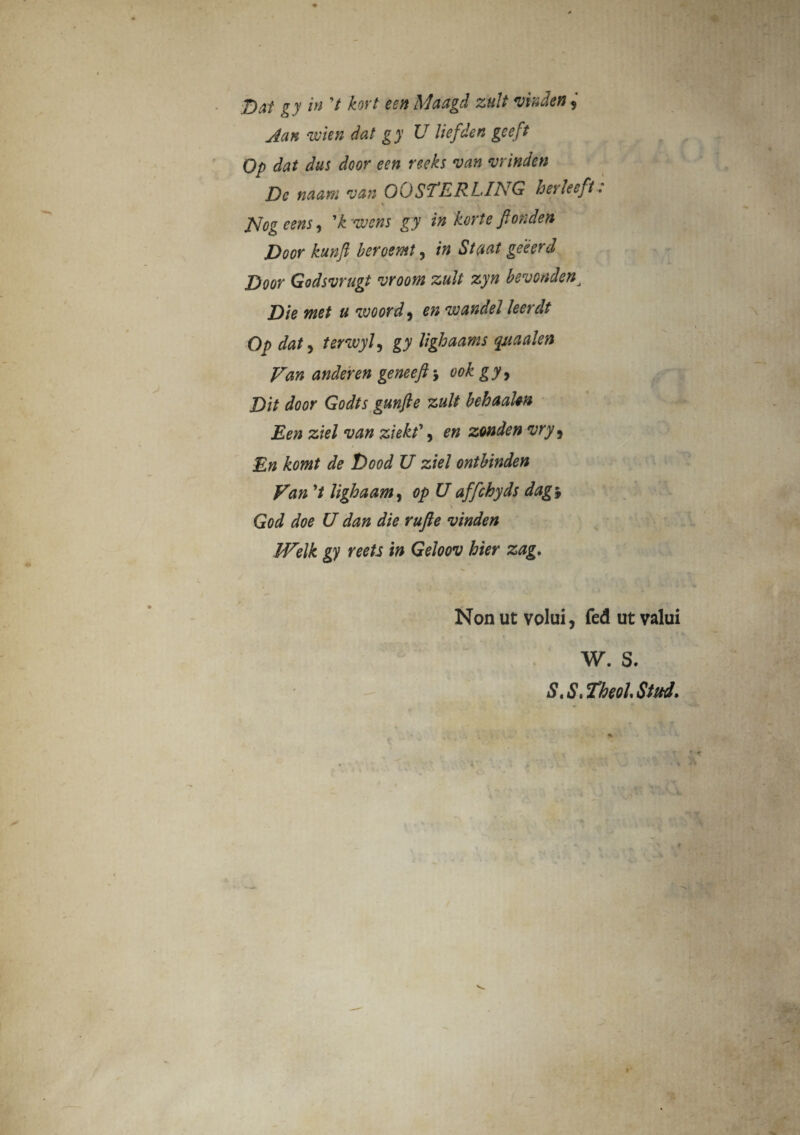 Dat gy in 't kort een Maagd zult vinden,
Aan wien dat gy U liefden geeft
Op dat dus door een reeks van vrinden
De naam van OOSTERLING herleeft:
Nog eens, 'k wens gy in korte ſtonden
Door kunſt beroemt, in Staat geëerd
Door Godsvrugt vroom zult zyn bevonden,
Die met u woord, en wandel leerdt
Op dat, terwyl, gy lighaams quaalen
Van anderen geneeſt; ook gy,
Dit door Godts gunſte zult behaalen
Een ziel van ziekt', en zonden vry,
En komt de Dood U ziel ontbinden
Van 't lighaam, op U affchyds dag;
God doe U dan die ruſte vinden
Welk gy reets in Geloov hier zag.
Non ut volui, ſed ut valui
W. S.
S. S. Theol. Stud.